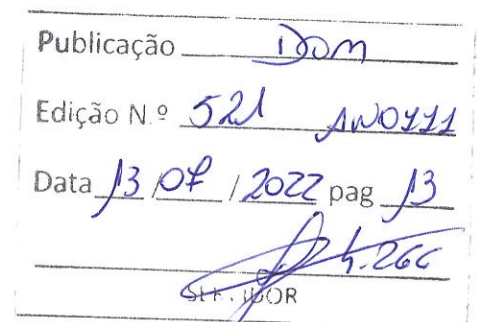 Publicação DOM
Edição N.º 521 ANO III
Data 13/07/2022 pag 13
4.266
SERVIDOR